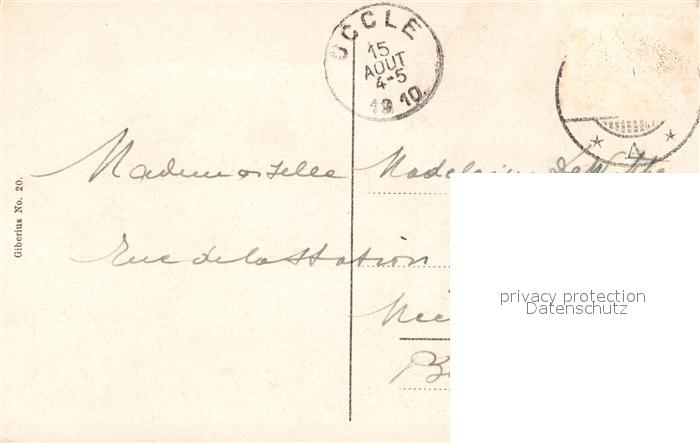 UCCLE
15
AOUT
4-5
19 10
* A *
Mademoiselle Madeleine
Rue de la Station
Giberius No. 20.
privacy protection
Datenschutz